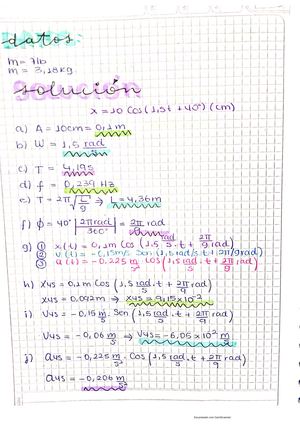 datos:
m = 7lb
m = 3,18kg
solución
x = 10 Cos (1,5t + 40°) (cm)
a) A = 10cm = 0,1m
b) W = 1,5 rad/s
c) T = 4,19s
d) f = 0,239 Hz
e) T = 2π √(L/g) ⇒ L = 4,36m
f) ϕ = 40° |2πrad/360°| = 2π/9 rad
g) ① x(t) = 0,1m Cos (1,5 rad/s · t + 2π/9 rad)
② v(t) = -0,15m/s Sen (1,5rad/s · t + 2π/9rad)
③ a(t) = -0.225 m/s² Cos (1,5 rad/s · t + 2π/9 rad)
h) X4s = 0,1m Cos (1,5 rad/s · t + 2π/9 rad)
X4s = 0,092m ⇒ X4s = 9,15x10⁻²
i) V4s = -0,15 m/s · Sen (1,5 rad/s · t + 2π/9 rad)
V4s = -0,06 m/s ⇒ V4s = -6,05x10⁻² m/s
j) a4s = -0,225 m/s² · Cos (1,5 rad/s · t + 2π/9 rad)
a4s = -0,206 m/s²
Escaneado con CamScanner